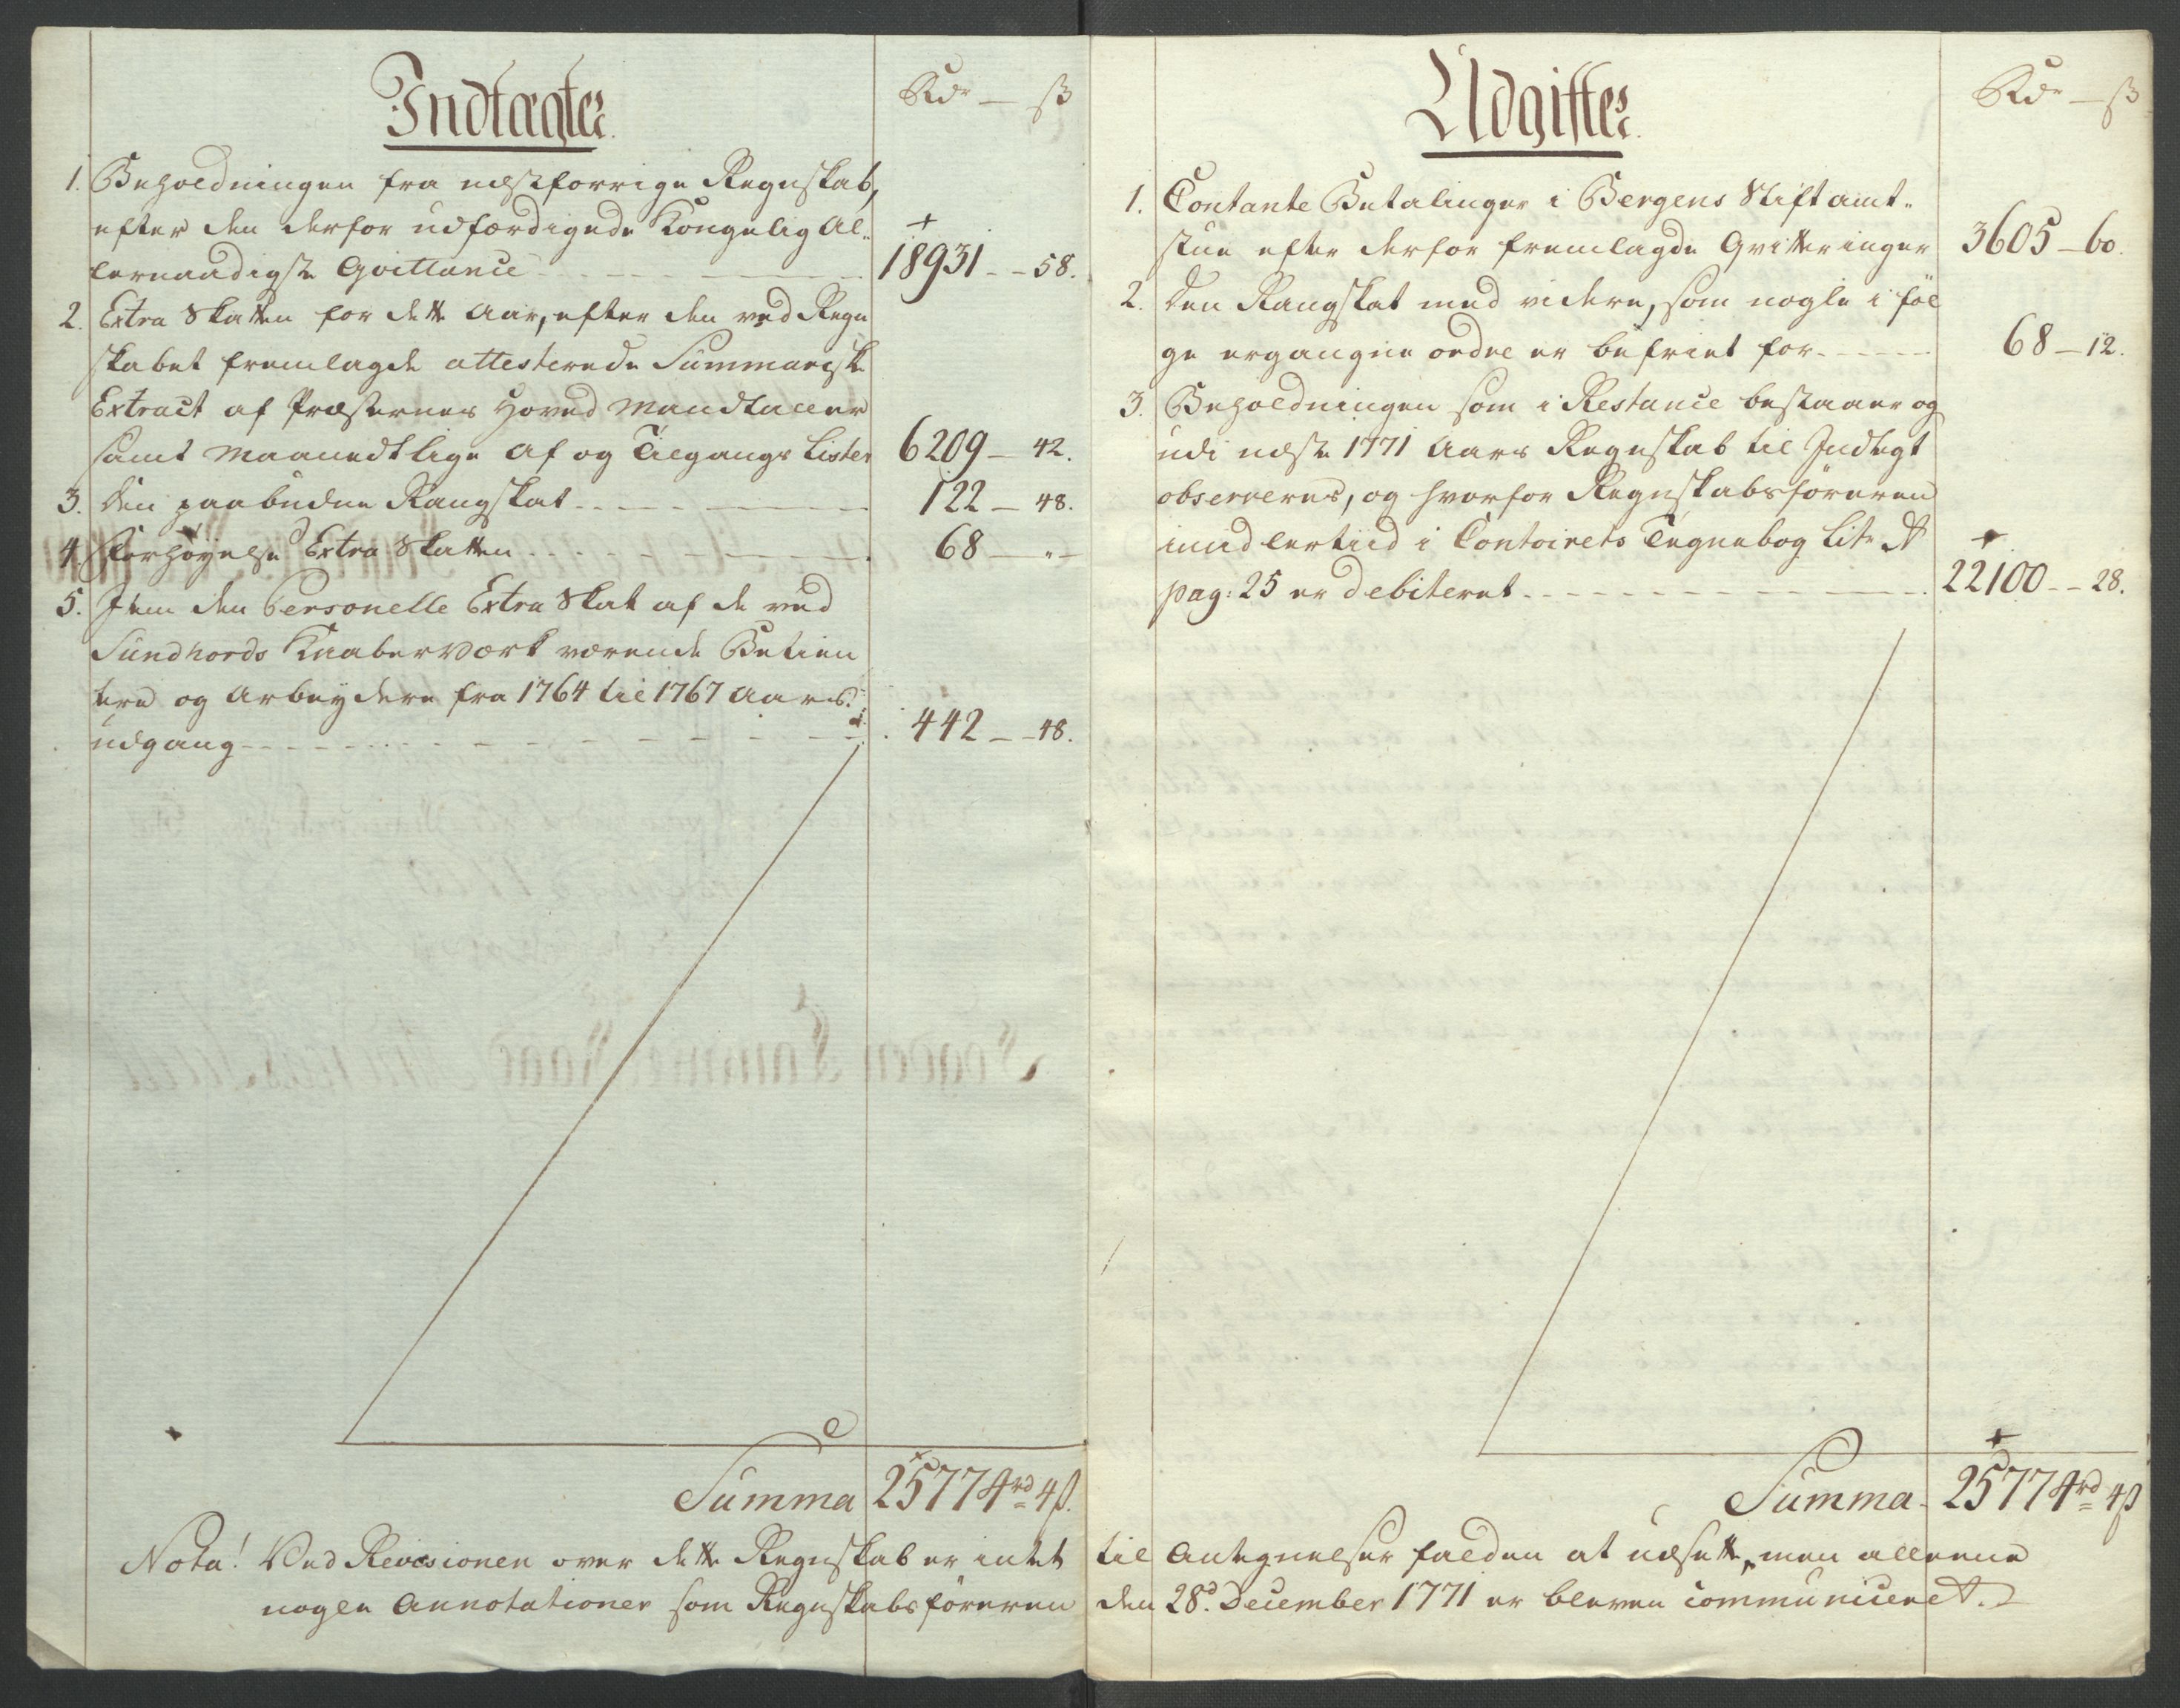 Indtægter.
Rdr — ß
1. Beholdningen fra næstforrige Regnskab,
efter den derfor udfærdigede Kongelig Al-
lernaadigste Qvittance 18931 - - 58.
2. Extra Skatten for dette Aar, efter den ved Regn
skabet fremlagde attesterede Summariske
Extract af Præsternes Hoved Mandtaller
samt Maanedtlige Af og Tilgangs Lister 6209 - 42.
3. Den paabudne Rangskat 122 - 48.
4. Forhøyelse Extra Skatten 68 - „ -
5. Item den Personelle Extra Skat af de ved
Sundhords Kaaberværk værende Betien
tere og Arbeydere fra 1764 til 1767 Aars
udgang 442 - - 48.
Summa 25774rd 4ß.
Udgifter.
Rdr — ß
1. Contante Betalinger i Bergens Stiftamt-
stue efter derfor fremlagde Qvitteringer 3605 - 60.
2. Den Rangskat med videre, som nogle i føl
ge ergangne ordre er befriet for 68 - 12.
3. Beholdningen som i Restance bestaaer og
udi næste 1771 Aars Regnskab til Indtægt
observeres, og hvorfor Regnskabsføreren
imidlertiid i Contoirets Tegnebog Litr A
pag: 25 er debiteret 22100 - - 28.
Summa 25774rd 4ß
Nota! Ved Revisionen over dette Regnskab er intet til Antegnelser falden at udsette, men alleene
nogle Annotationer som Regnskabsføreren den 28d December 1771 er bleven communiceret.